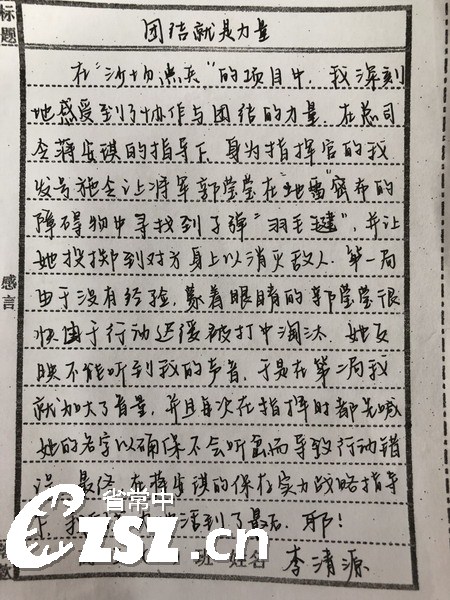 标题
团结就是力量
在“沙场点兵”的项目中，我深刻
地感受到了协作与团结的力量．在总司
令蒋安琪的指导下 身为指挥官的我
发号施令让将军郭莹莹在“地雷”密布的
障碍物中寻找到子弹“羽毛毽”，并让
她投掷到对方身上以消灭敌人．第一局
由于没有经验．蒙着眼睛的郭莹莹很
快由于行动迟缓被打中淘汰．她反
映不能听到我的声音，于是在第二局我
就加大了音量，并且每次在指挥时都先喊
她的名字以确保不会听岔而导致行动错
误 最终 在蒋安琪的保存实力战略指导
下 活到了最后．耶！
班 姓名 李清源
感言
省常中
czsz.cn